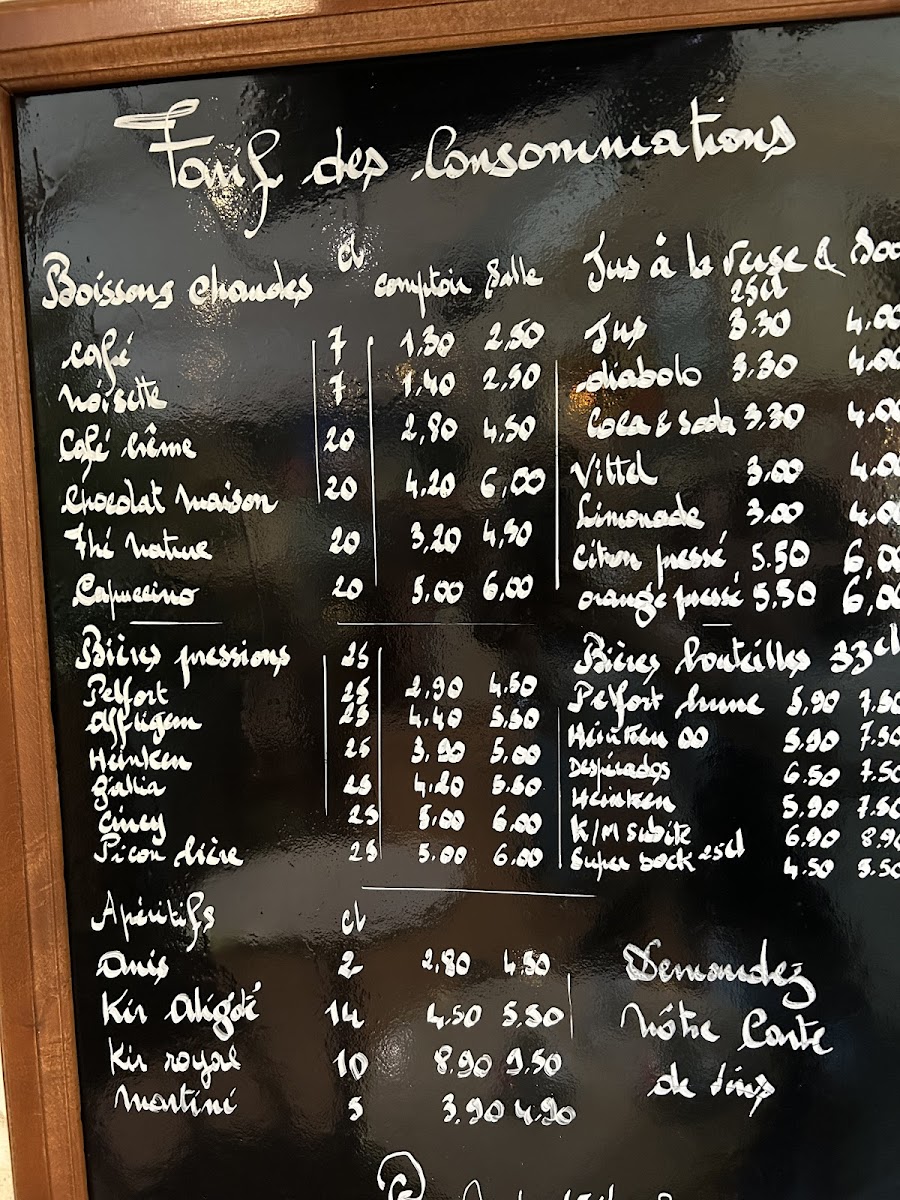 Tarif des Consommations
Boissons chaudes cl comptoir Salle
Café 7 1,30 2,50
Noisette 7 1,40 2,50
Café Crême 20 2,80 4,50
Chocolat maison 20 4,20 6,00
Thé nature 20 3,20 4,90
Capuccino 20 5,00 6,00
Jus à la Verse &
25cl
Jus 3.30 4.00
diabolo 3,30 4.00
Coca & soda 3,30 4.00
Vittel 3.00 4.00
Limonade 3.00 4.00
Citron pressé 5.50 6,00
orange pressé 5.50 6,00
Bières pressions 25
Pelfort 25 2,90 4.50
affligem 25 4.40 5.50
Heinken 25 3,90 5,00
gallia 25 4,20 5.50
Ciney 25 5,00 6,00
Picon bière 25 5,00 6,00
Bières bouteilles 33cl
Pelfort brune 5,90 7.50
Heinken 00 5,90 7.50
Despérados 6.50 7.50
Heinken 5,90 7.50
K/M Subite 6,90 8,90
Super bock 25cl 4.50 5.50
Apéritifs cl
Anis 2 2,80 4.50
Kir Aligoté 14 4.50 5.50
Kir royal 10 8.90 9.50
Martini 5 3.90 4.90
Demandez
Nôtre Carte
de Vins